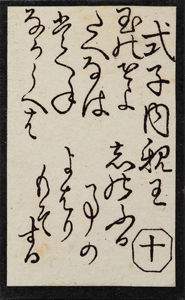 式子内親王
十
玉のをよ
たえなは
たえね
なからへは
志のふる
事の
よはり
もそ
する